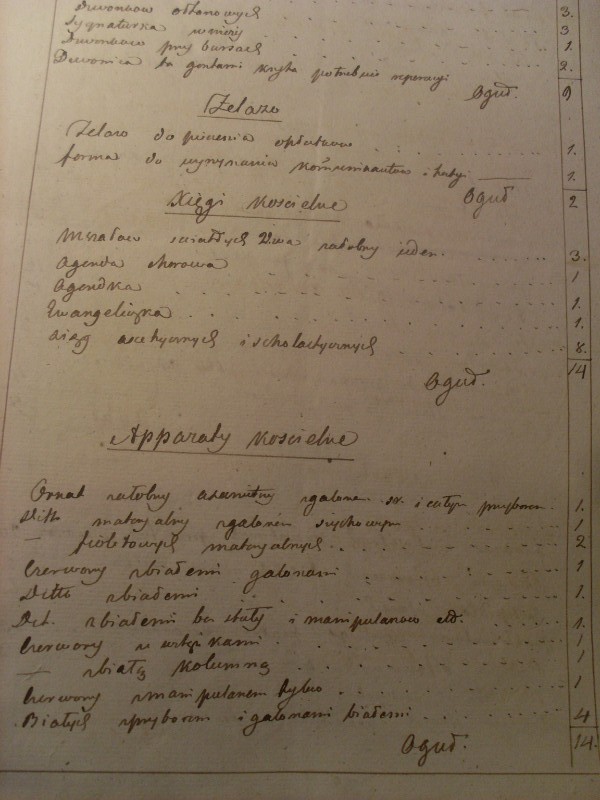 Dzwonków ołtarzowych 3.
Sygnaturka w wieży 3
Dzwonków przy bursach 1.
Dzwonica ta gontami kryta potrzebuie reperacyi 2.
Oguł. 9
Żelazo
Żelazo do pieczenia opłatków 1.
forma do wyrzynania kommunikantów i hostyi 1.
Oguł 2
Xięgi Kościelne
Mszałow świętych Dwa żałobny jeden 3.
Agenda chorowa 1
Agendka 1.
Ewangeliczka 1.
xiąg ascetycznych i scholastycznych 8.
Oguł. 14
Apparaty Kościelne
Ornat żałobny axamitny z galonem i całym przyborem 1.
Ditto materyalny z galonem szychowym 1
— fioletowych materyalnych 2
Czerwony z białemi galonami 1
Ditto z białemi 1
Det. z białemi bez stuły i manipularzow 1.
Czerwony z wstążkami 1
— z białą kolumną 1
Czerwony z manipularzem tylko 1
Białych z przyborem i galonami białemi 4
Oguł. 14.